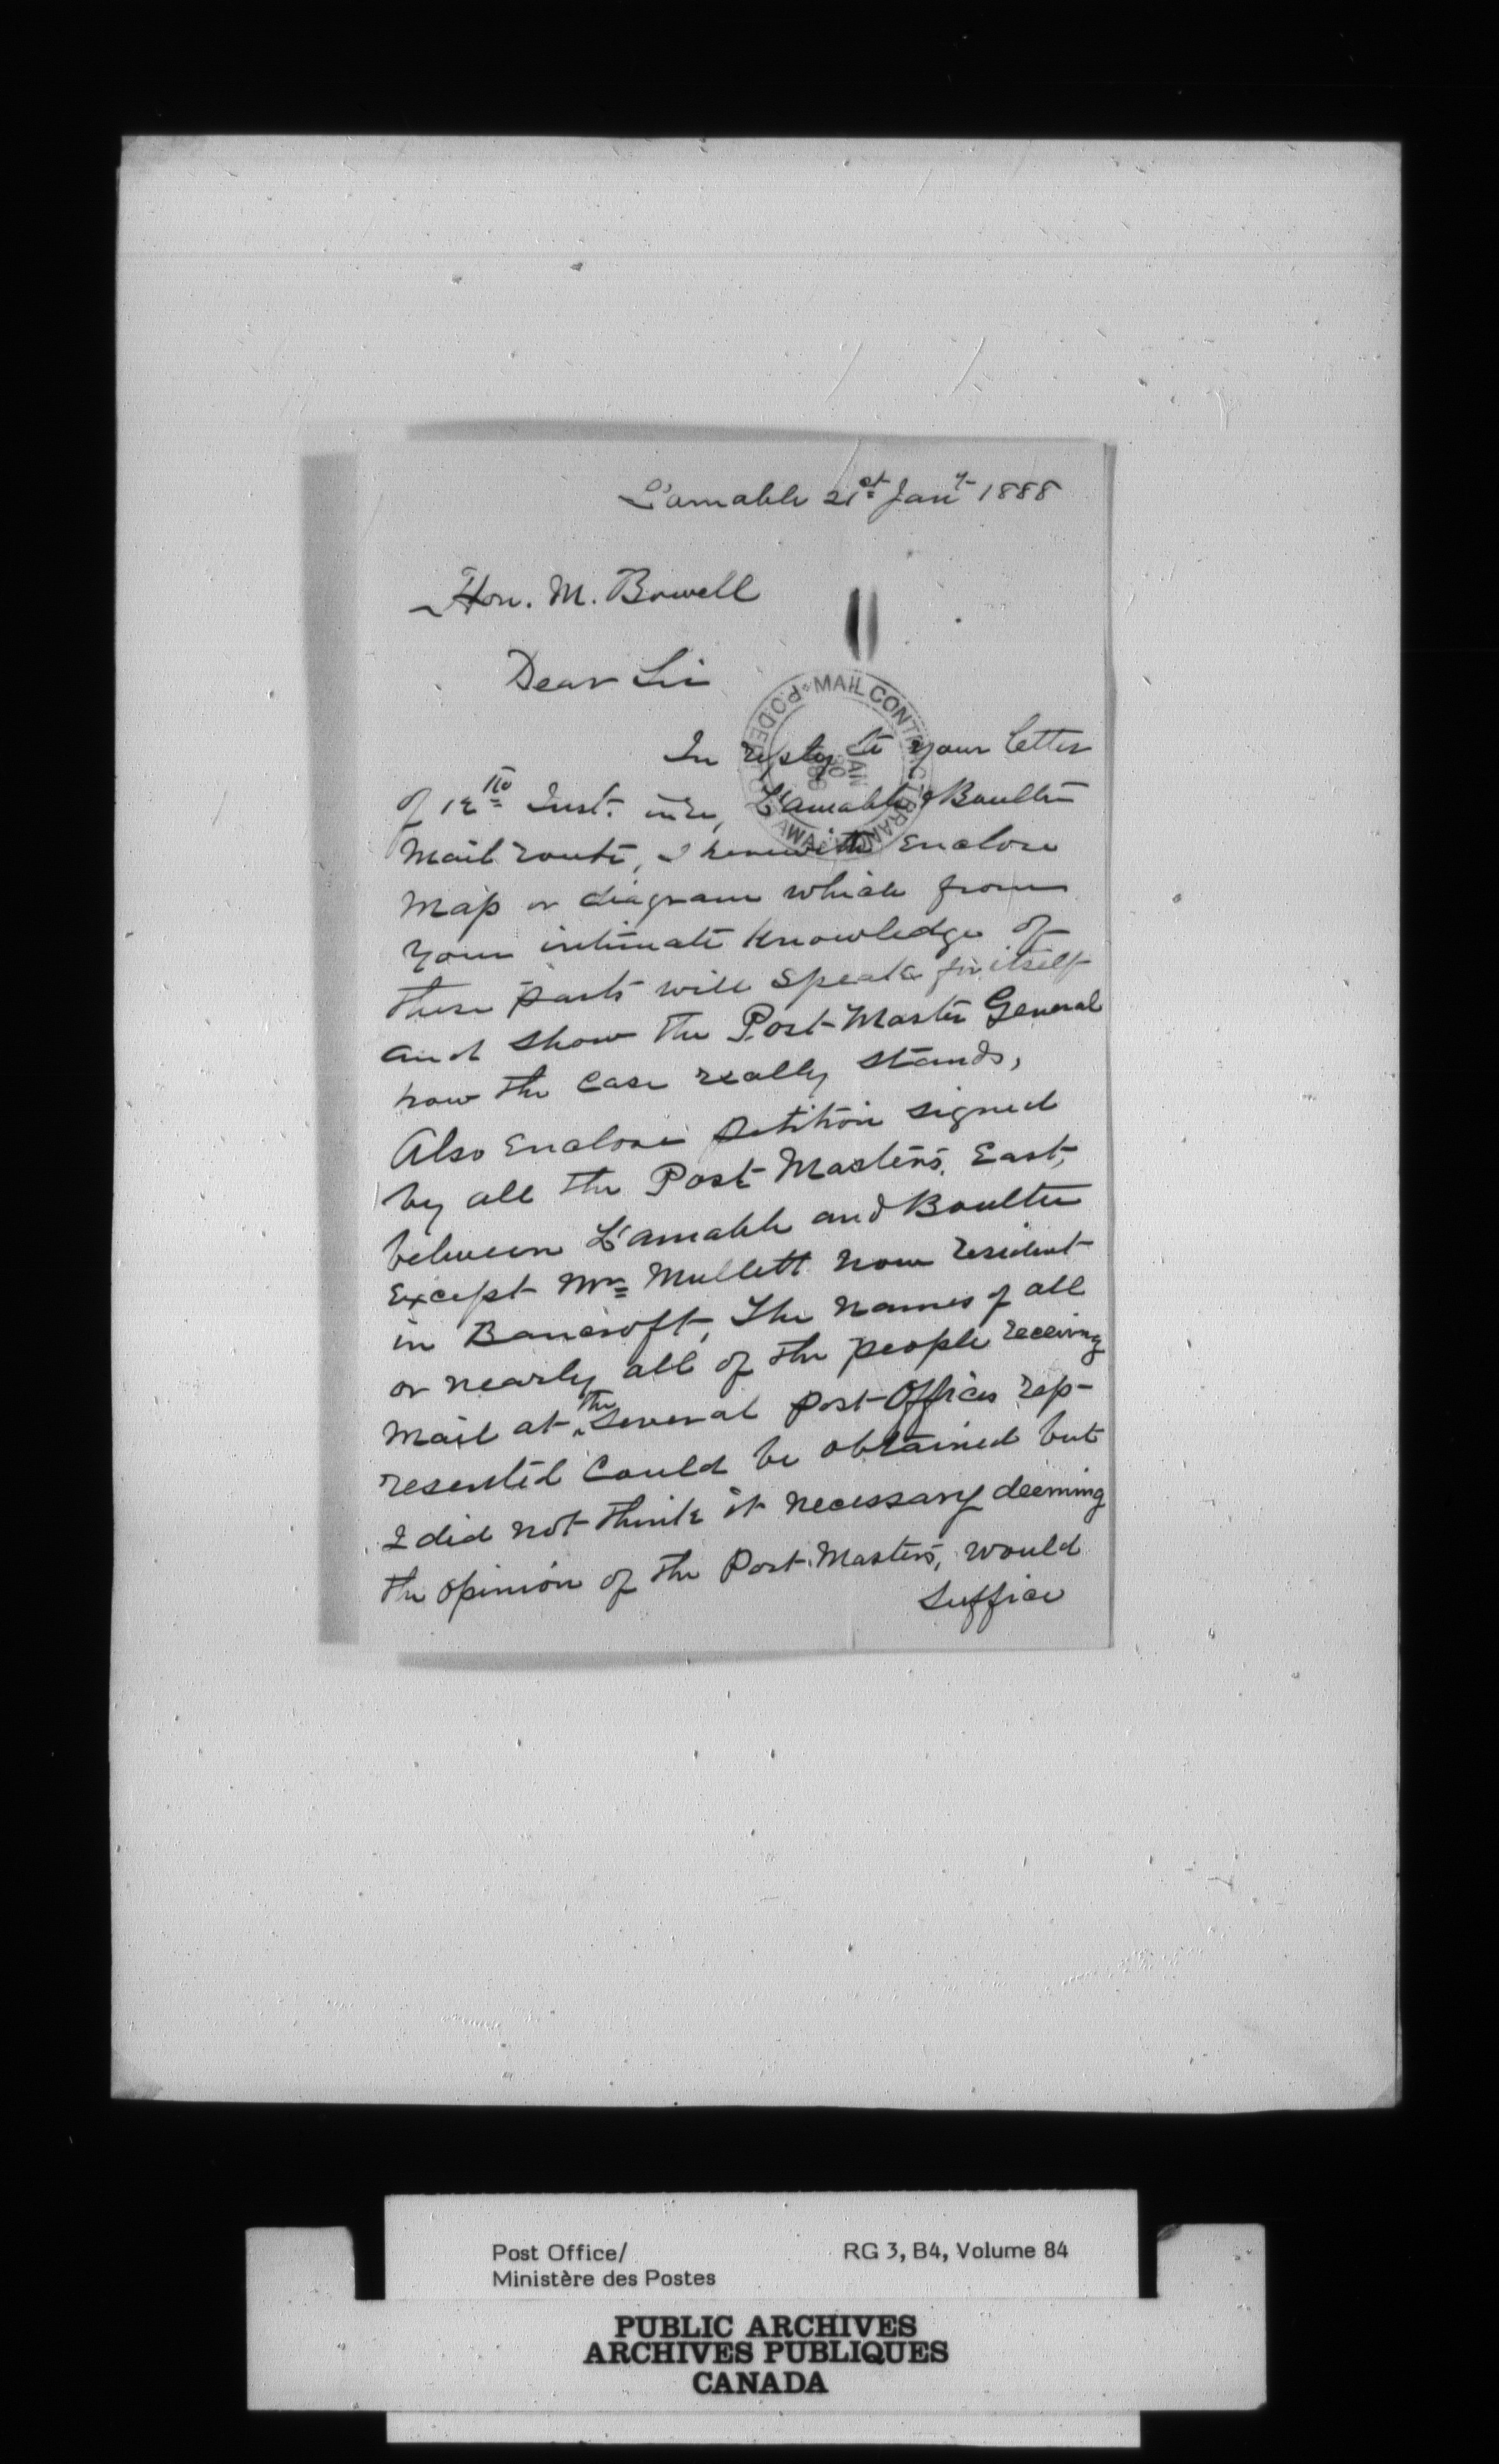 L'amable 21st Jany 1888
Hon. M. Bowell
Dear Sir
P.O. DEPT OTTAWA MAIL CONTRACT BRANCH
JAN 30 88
In reply to your letter
of 12th Inst. in re, L'amable & Boulter
Mail route, I herewith Enclose
Map or diagram which from
your intimate knowledge of
these parts will speak for itself
and show the Post-Master General
how the case really stands,
Also Enclose petition signed
by all the Post Masters, East,
between L'amable and Boulter
Except Mrs Mullett now resident
in Bancroft, The names of all
or nearly all of the people receiving
Mail at the several post-Offices rep-
resented Could be obtained but
I did not think it necessary deeming
the opinion of the Post Masters, would
suffice
Post Office/
Ministère des Postes
RG 3, B4, Volume 84
PUBLIC ARCHIVES
ARCHIVES PUBLIQUES
CANADA